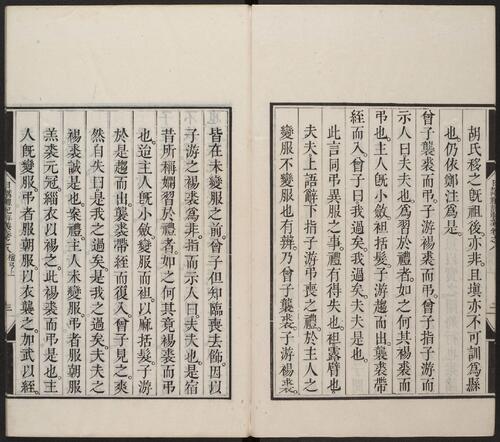 胡氏移之旣祖後亦非。且塡亦不可訓爲縣
也。仍依鄭注爲是。
曾子襲裘而弔。子游裼裘而弔。曾子指子游而
示人曰。夫夫也。爲習於禮者。如之何其裼裘而
弔也。主人旣小斂。袒括髮。子游趨而出。襲裘帶
絰而入。曾子曰。我過矣。我過矣。夫夫是也。
此言同弔異服之事。禮有得失也。袒。露臂也。
夫夫。上語辭。下指子游。弔喪之禮。於主人之
變服不變服也有辨。乃曾子襲裘。子游裼裘。
皆在未變服之前。曾子但知臨喪去飾。因以
子游之裼裘爲非。指而示人曰。夫夫也。是宿
昔所稱嫻習於禮者。如之何其竟裼裘而弔
也。迨主人旣小斂。變服而袒。以麻括髮。子游
於是趨而出。襲裘帶絰而復入。曾子見之。爽
然自失曰。是我之過矣。是我之過矣。夫夫之
裼裘誠是也。案禮主人未變服。弔者服朝服
羔裘元冠。緇衣以裼之。此裼裘而弔是也。主
人旣變服。弔者服朝服。以衣襲之。加武以絰。
日講禮記解義卷之八 檀弓上 三